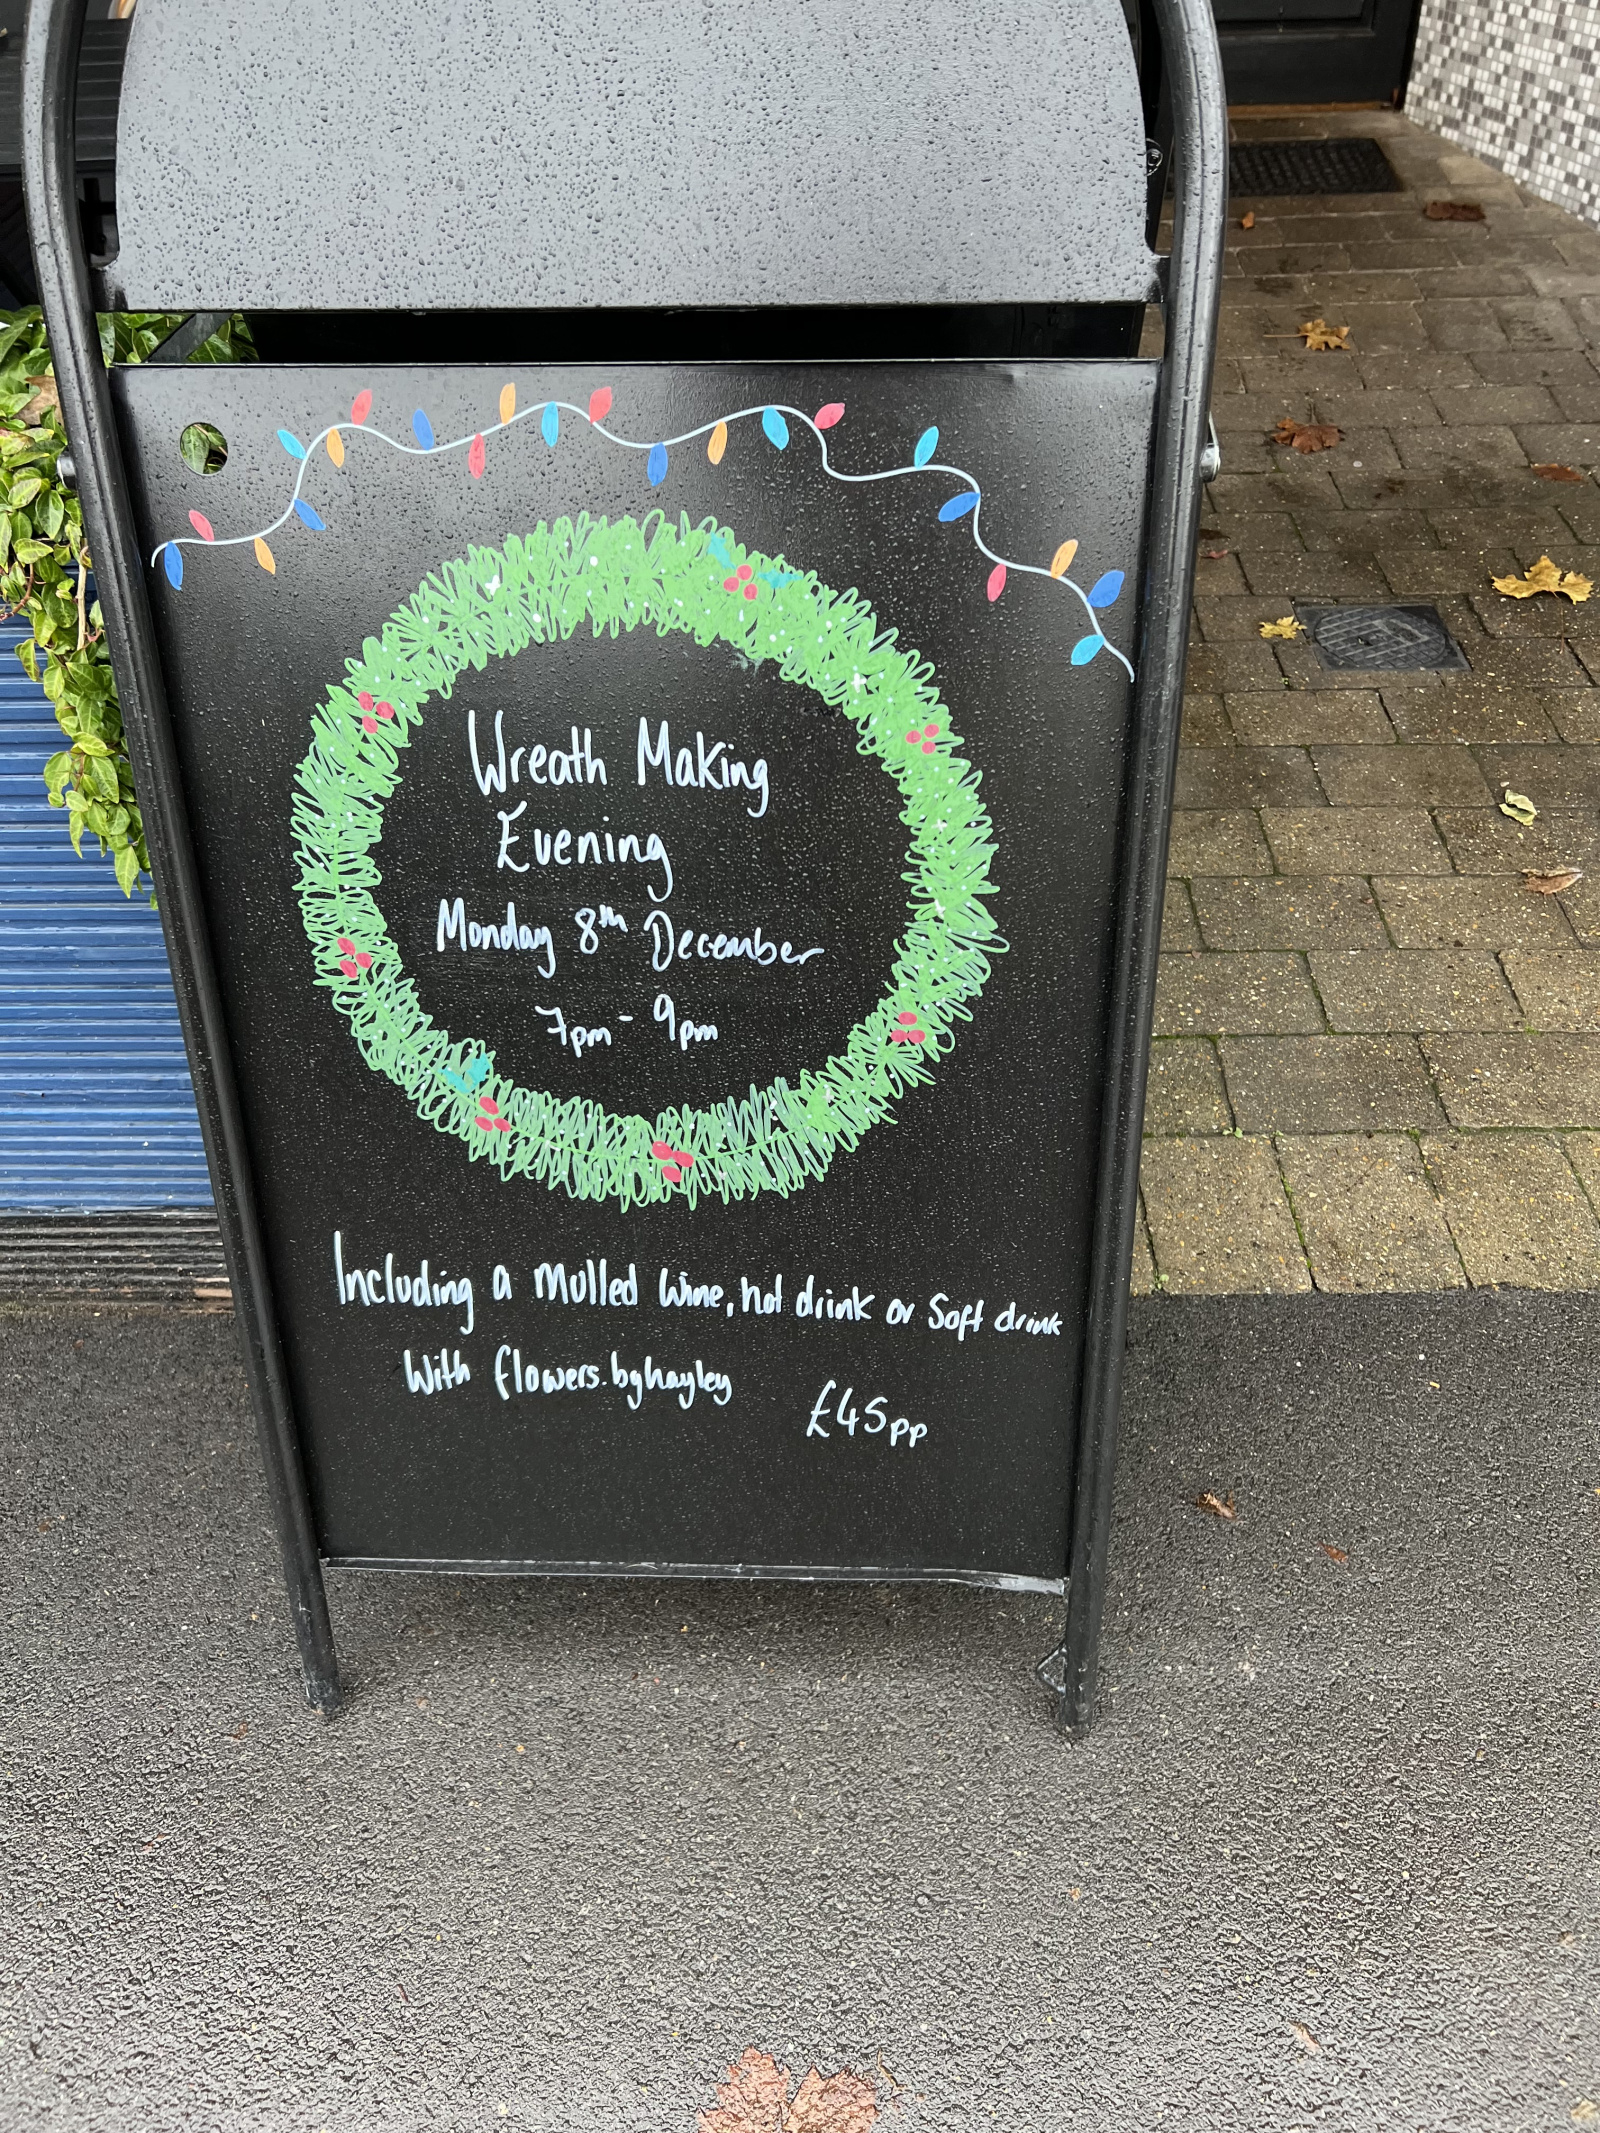 Wreath Making
Evening
Monday 8th December
7pm - 9pm
Including a mulled wine, hot drink or soft drink
With flowers.byhayley
£45pp